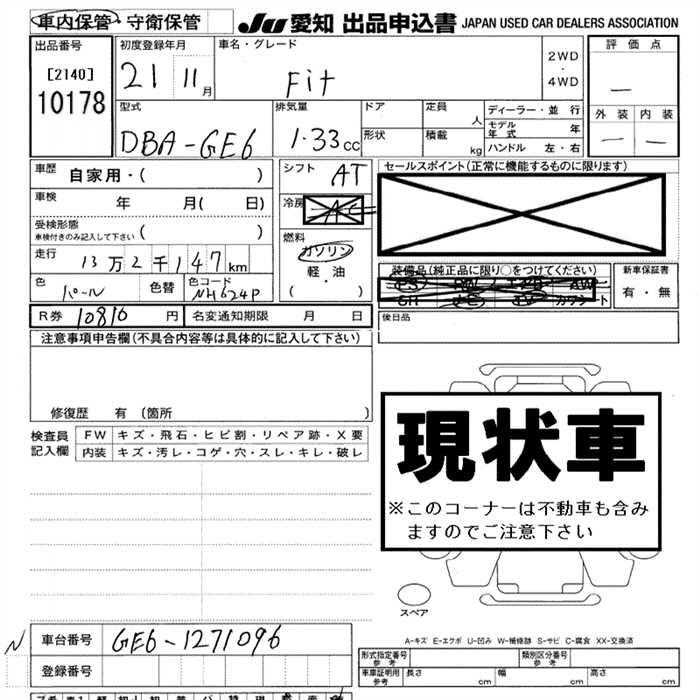 車内保管・守衛保管
JU 愛知 出品申込書 JAPAN USED CAR DEALERS ASSOCIATION
出品番号
[2140]
10178
初度登録年月
21 11月
車名・グレード
Fit
2WD
・
4WD
評価点
—
外装 内装
— —
型式
DBA-GE6
排気量
1.33cc
ドア
形状
定員 人
積載 kg
ディーラー・並行
モデル年式 年
ハンドル 左・右
車歴
自家用・( )
車検 年 月( 日)
受検形態
車検付きのみ記入して下さい ( )
走行
13万2千147km
色
パール
色替
色コード
NH624P
シフト
AT
冷房
AC
燃料
ガソリン
軽・油
( )
セールスポイント(正常に機能するものに限ります)
装備品(純正品に限り○をつけてください)
PS PW AW
SR TV カワシート
新車保証書
有・無
R券 10810円
名変通知期限 月 日
後日品
注意事項申告欄(不具合内容等は具体的に記入して下さい)
修復歴 有 (箇所 )
検査員記入欄
FW キズ・飛石・ヒビ割・リペア跡・X要
内装 キズ・汚レ・コゲ・穴・スレ・キレ・破レ
現状車
※このコーナーは不動車も含み
ますのでご注意下さい
スペア
A-キズ E-エクボ U-凹み W-補修跡 S-サビ C-腐食 XX-交換済
N
車台番号 GE6-1271096
登録番号
形式指定番号
参考
類別区分番号
参考
車庫証明用
参考
長さ cm
幅 cm
高さ cm